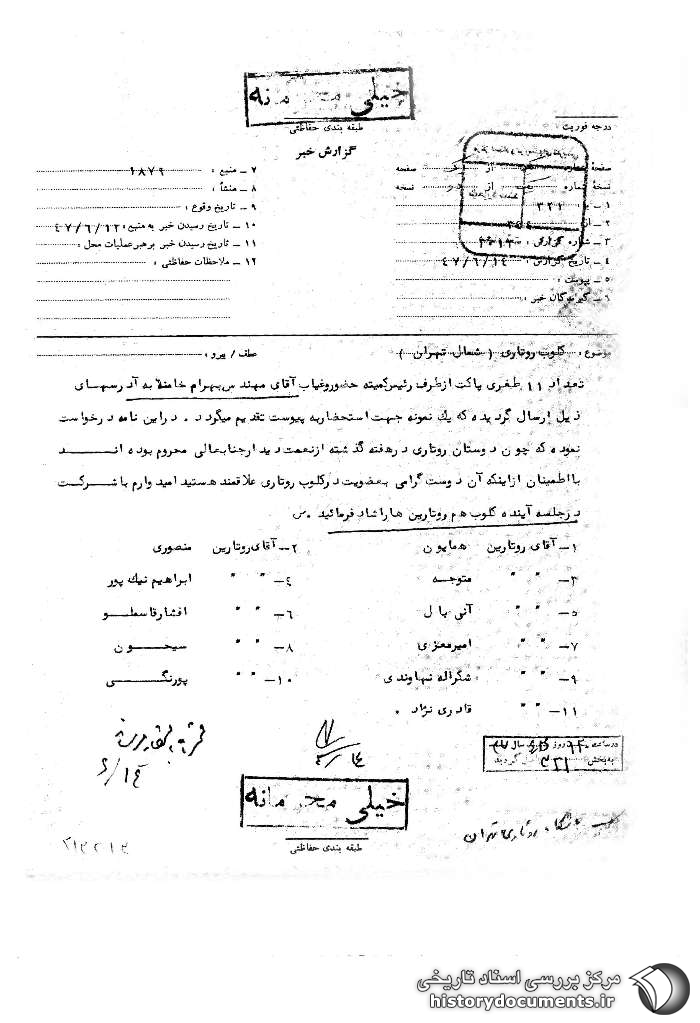 خیلی محرمانه
طبقه بندی حفاظتی
درجه فوریت
گزارش خبر
صفحه شماره از صفحه
نسخه شماره از نسخه
۱ – به ۳۲۱
۲ – از
۳ – شماره گزارش :
۴ – تاریخ گزارش : ۴۷/۶/۱۴
۵ – پیوست :
۶ – گیرندگان خبر :
۷ – منبع : ۱۸۷۹
۸ – منشأ :
۹ – تاریخ وقوع :
۱۰ – تاریخ رسیدن خبر به منبع : ۴۷/۶/۱۲
۱۱ – تاریخ رسیدن خبر برهبر عملیات محل :
۱۲ – ملاحظات حفاظتی :
موضوع : کلوب روتاری ( شمال تهران )
عطف / پیرو :
تعداد ۱۱ طغری پاکت ازطرف رئیس کمیته حضور وغیاب آقای مهندس بهرام خامنه به آدرسهای
ذیل ارسال گردیده که یك نمونه جهت استحضار به پیوست تقدیم میگردد . دراین نامه درخواست
نموده که چون دوستان روتاری درهفته گذشته ازنعمت دیدارجنابعالی محروم بوده اند
بااطمینان ازاینکه آن دوست گرامی بعضویت درکلوب روتاری علاقمند هستید امیدوارم باشرکت
درجلسه آینده کلوب هم روتارین هاراشاد فرمائید . س
۱– آقای روتارین همایون
۲– آقای روتارین منصوری
۳– " " متوجه
۴– " " ابراهیم نیك پور
۵– " " آنی پال
۶– " " افشارقاسطو
۷– " " امیرمعزی
۸– " " سیحون
۹– " " شکراله نهاوندی
۱۰– " " پورنگی
۱۱– " " قادری نژاد .
۶/۱۴
در ساعت روز سال
به بخش ۳۲۱ گردید
خیلی محرمانه
طبقه بندی حفاظتی
روتاری تهران
مرکز بررسی اسناد تاریخی
historydocuments.ir